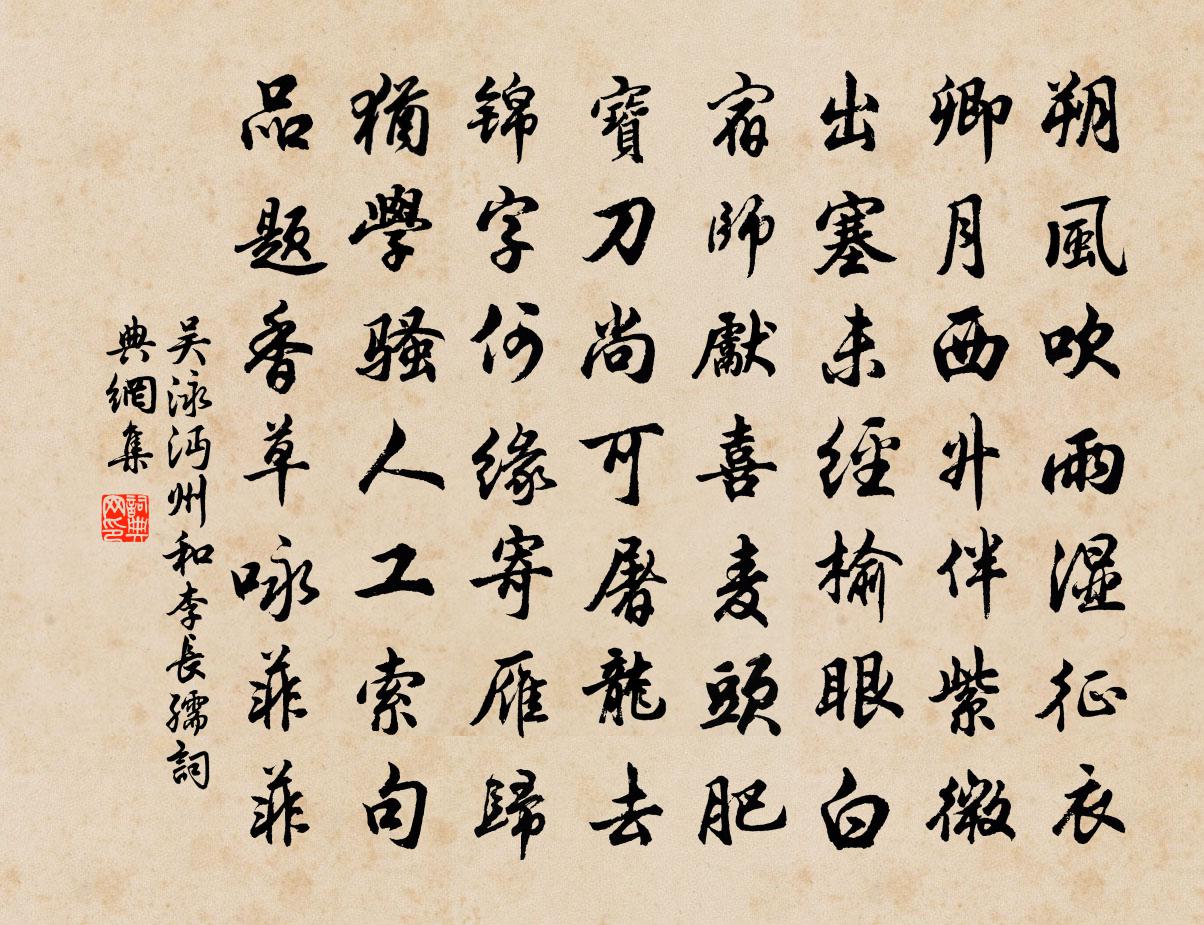 朔風吹雨濕征衣
卿月西升伴紫微
出塞未經榆眼白
宿師獻喜麦頭肥
寶刀尚可屠龍去
锦字何緣寄雁歸
猶學騷人工索句
品題香草咏菲菲
吴泳沔州和李長孺詞
典網集
詞典
网印